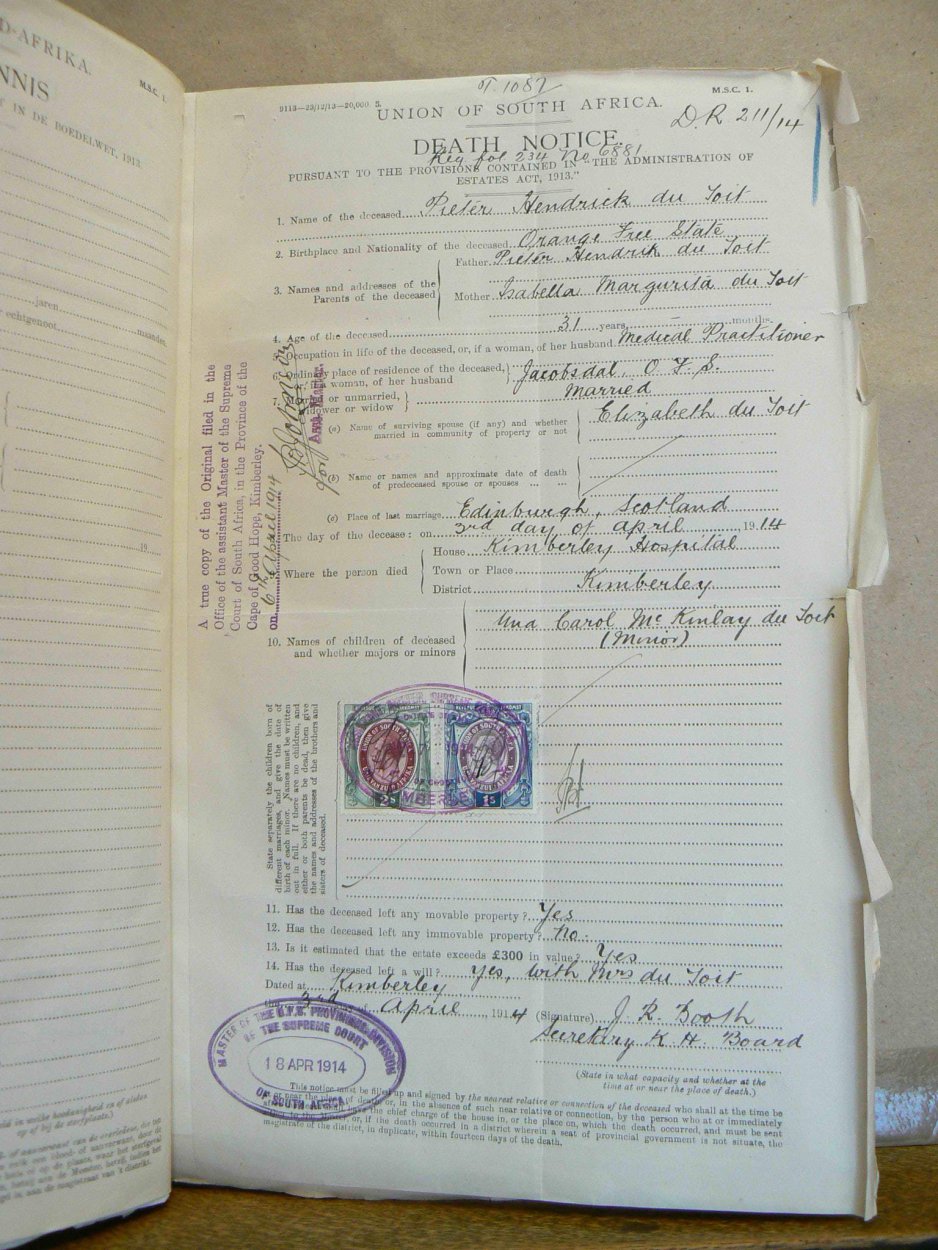 D-AFRIKA.
NNIS
M.S.C. 1.
T IN DE BOEDELWET, 1913.
jaren
maanden.
echtgenoot
19
T. 1087
M.S.C. 1.
9113—23/12/13—20,000 S.
UNION OF SOUTH AFRICA.
D.R. 211/14
DEATH NOTICE
Reg fol 234 No 6881
PURSUANT TO THE PROVISIONS CONTAINED IN "THE ADMINISTRATION OF
ESTATES ACT, 1913."
1. Name of the deceased Pieter Hendrick du Toit
2. Birthplace and Nationality of the deceased Orange Free State
3. Names and addresses of the Parents of the deceased
Father Pieter Hendrik du Toit
Mother Isabella Margurita du Toit
4. Age of the deceased 31 years months.
5. Occupation in life of the deceased, or, if a woman, of her husband Medical Practitioner
6. Ordinary place of residence of the deceased, or, if a woman, of her husband Jacobsdal O F S.
7. Married or unmarried, widower or widow Married
(a) Name of surviving spouse (if any) and whether married in community of property or not Elizabeth du Toit
(b) Name or names and approximate date of death of predeceased spouse or spouses
(c) Place of last marriage Edinburgh, Scotland
The day of the decease: on 3rd day of April 1914
Where the person died
House Kimberley Hospital
Town or Place
District Kimberley
10. Names of children of deceased and whether majors or minors
Una Carol McKinlay du Toit
(Minor)
A true copy of the Original filed in the
Office of the assistant Master of the Supreme
Court of South Africa, in the Province of the
Cape of Good Hope, Kimberley.
on 6th April 1914
for
Asst. Master.
State separately the children born of
different marriages, and give the date of
birth of each minor. Names must be written
out in full. If there are no children, and
either or both parents be dead, then give
the names and addresses of the brothers and
sisters of deceased.
UNION OF SOUTH AFRICA
2s
UNION OF SOUTH AFRICA
1s
11. Has the deceased left any movable property? Yes
12. Has the deceased left any immovable property? No
13. Is it estimated that the estate exceeds £300 in value? Yes
14. Has the deceased left a will? Yes, with Mrs du Toit
Dated at Kimberley
the 3rd day of April 1914
(Signature) J. R. Booth
Secretary K. H. Board
(State in what capacity and whether at the
time at or near the place of death.)
MASTER OF THE O.F.S. PROVINCIAL DIVISION
OF THE SUPREME COURT
18 APR 1914
OF SOUTH AFRICA
This notice must be filled up and signed by the nearest relative or connection of the deceased who shall at the time be
at or near the place of death, or, in the absence of such near relative or connection, by the person who at or immediately
have the chief charge of the house in, or the place on, which the death occurred, and must be sent
or, if the death occurred in a district wherein a seat of provincial government is not situate, the
magistrate of the district, in duplicate, within fourteen days of the death.